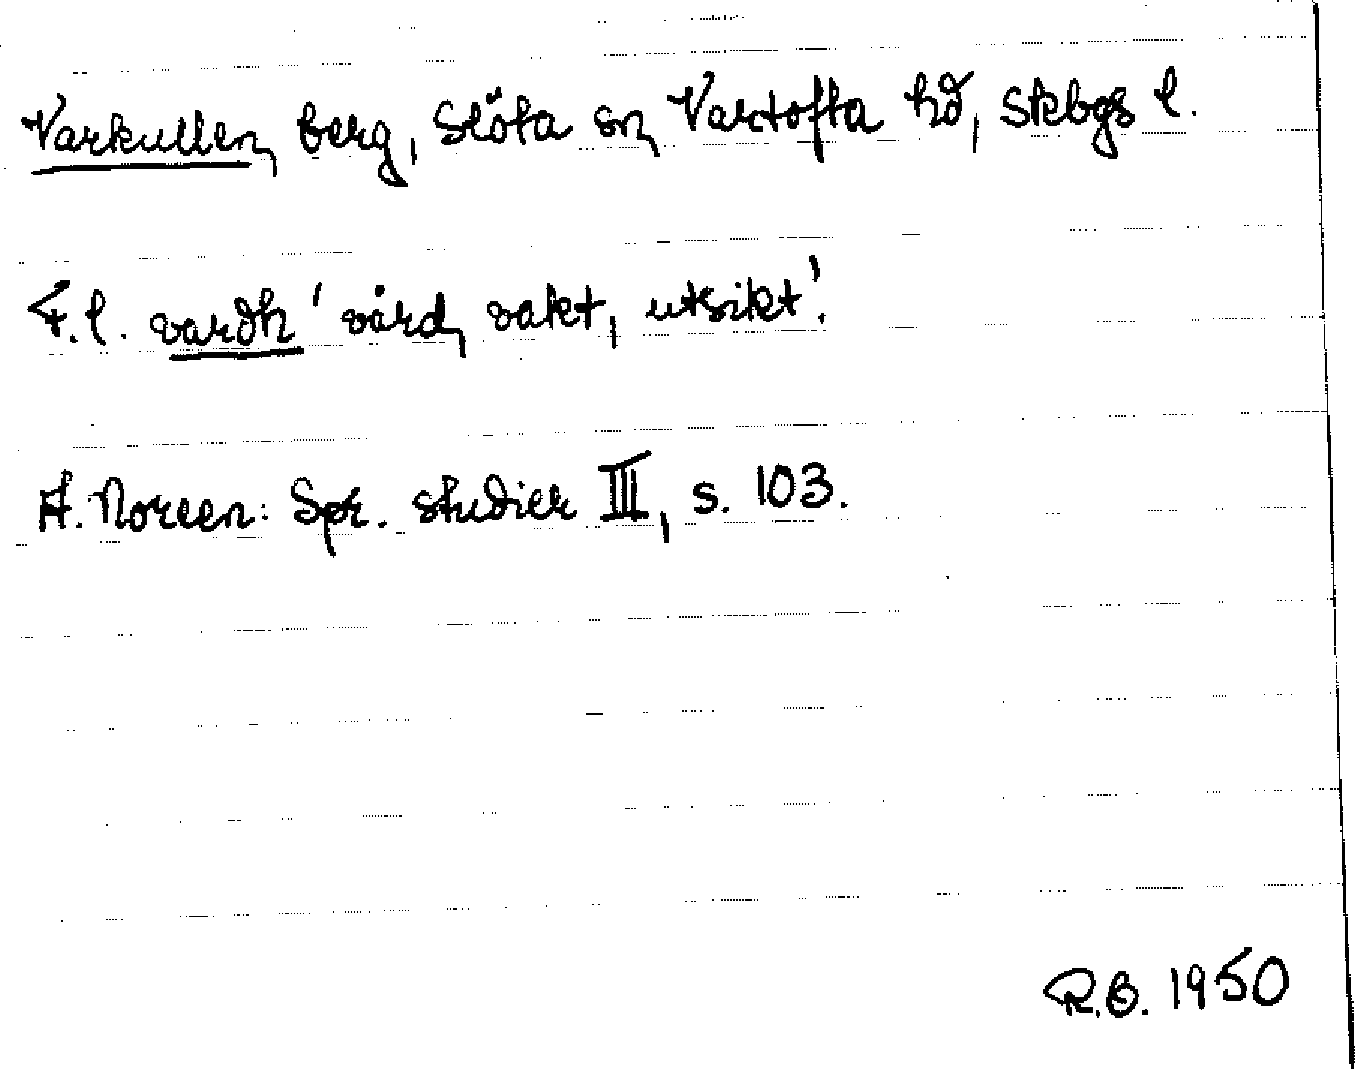 Varkullen, berg, Slöta sn, Vartofta hd, Skbgs l.
F.l. vardh 'vård, vakt, utsikt'.
A. Noreen: Spr. studier III, s. 103.
R.B. 1950